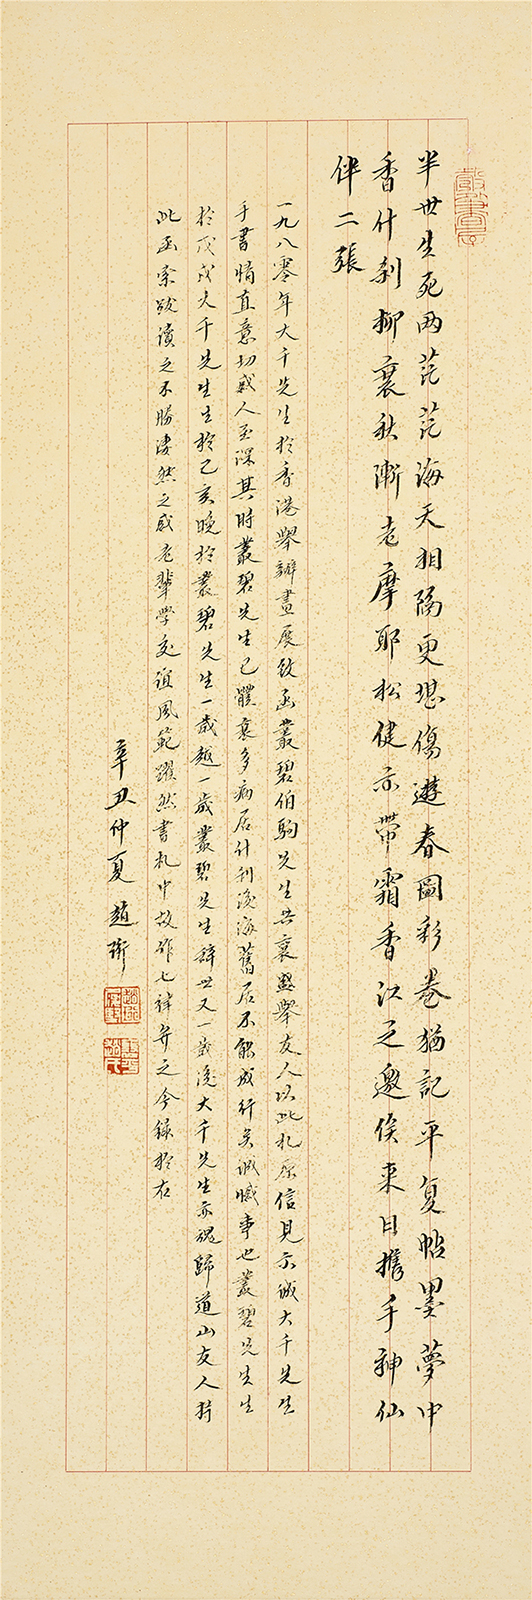 半世生死兩茫茫海天相隔更堪傷遊春圖彩卷猶記平復帖墨夢中
香什刹柳衰秋漸老摩耶松健亦帶霜香江之邀俟来日攜手神仙
伴二張
一九八零年大千先生於香港舉辦畫展致函叢碧伯駒先生共襄盛舉友人以此札原信見示誠大千先生
手書情真意切感人至深其時叢碧先生已體衰多病居什刹後海舊居不能成行矣誠憾事也叢碧先生生
於戊戌大千先生生於己亥晚於叢碧先生一歲越一歲叢碧先生辭世又一歲後大千先生亦魂歸道山友人持
此函索跋讀之不勝凄然之感老輩學交誼風範躍然書札中故作七律弁之今録於右
辛丑仲夏趙珩